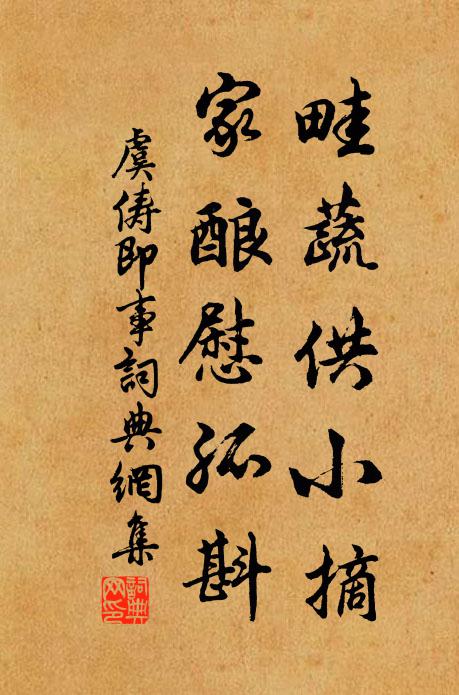 畦蔬供小摘
家酿慰孤斟
虞俦即事詞典網集
詞典网印